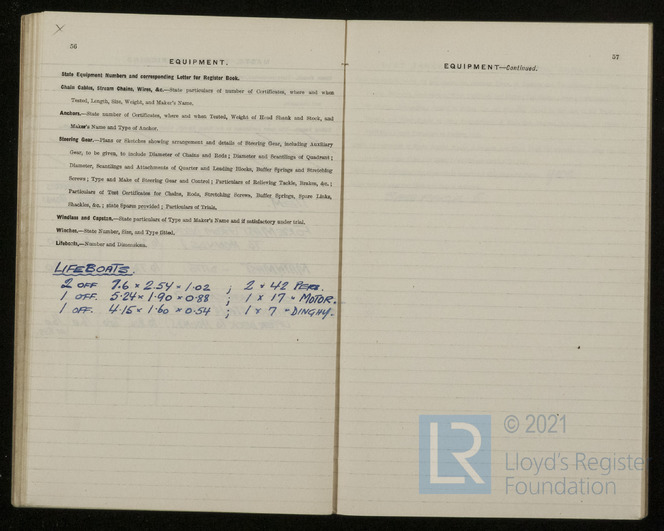 56
EQUIPMENT.
State Equipment Numbers and corresponding Letter for Register Book.
Chain Cables, Stream Chains, Wires, &c.—State particulars of number of Certificates, where and when
Tested, Length, Size, Weight, and Maker's Name.
Anchors.—State number of Certificates, where and when Tested, Weight of Head Shank and Stock, and
Maker's Name and Type of Anchor.
Steering Gear.—Plans or Sketches showing arrangement and details of Steering Gear, including Auxiliary
Gear, to be given, to include Diameter of Chains and Rods; Diameter and Scantlings of Quadrant;
Diameter, Scantlings and Attachments of Quarter and Leading Blocks, Buffer Springs and Stretching
Screws; Type and Make of Steering Gear and Control; Particulars of Relieving Tackle, Brakes, &c.;
Particulars of Test Certificates for Chains, Rods, Stretching Screws, Buffer Springs, Spare Links,
Shackles, &c.; state Spares provided; Particulars of Trials.
Windlass and Capstan.—State particulars of Type and Maker's Name and if satisfactory under trial.
Winches.—State Number, Size, and Type fitted.
Lifeboats.—Number and Dimensions.
LIFEBOATS.
2 OFF 7.6 × 2.54 × 1.02 ; 2 × 42 PERS.
1 OFF. 5.24 × 1.90 × 0.88 ; 1 × 17 " MOTOR.
1 OFF. 4.15 × 1.60 × 0.54 ; 1 × 7 " DINGHY.
57
EQUIPMENT—Continued.
LR
© 2021
Lloyd's Register
Foundation